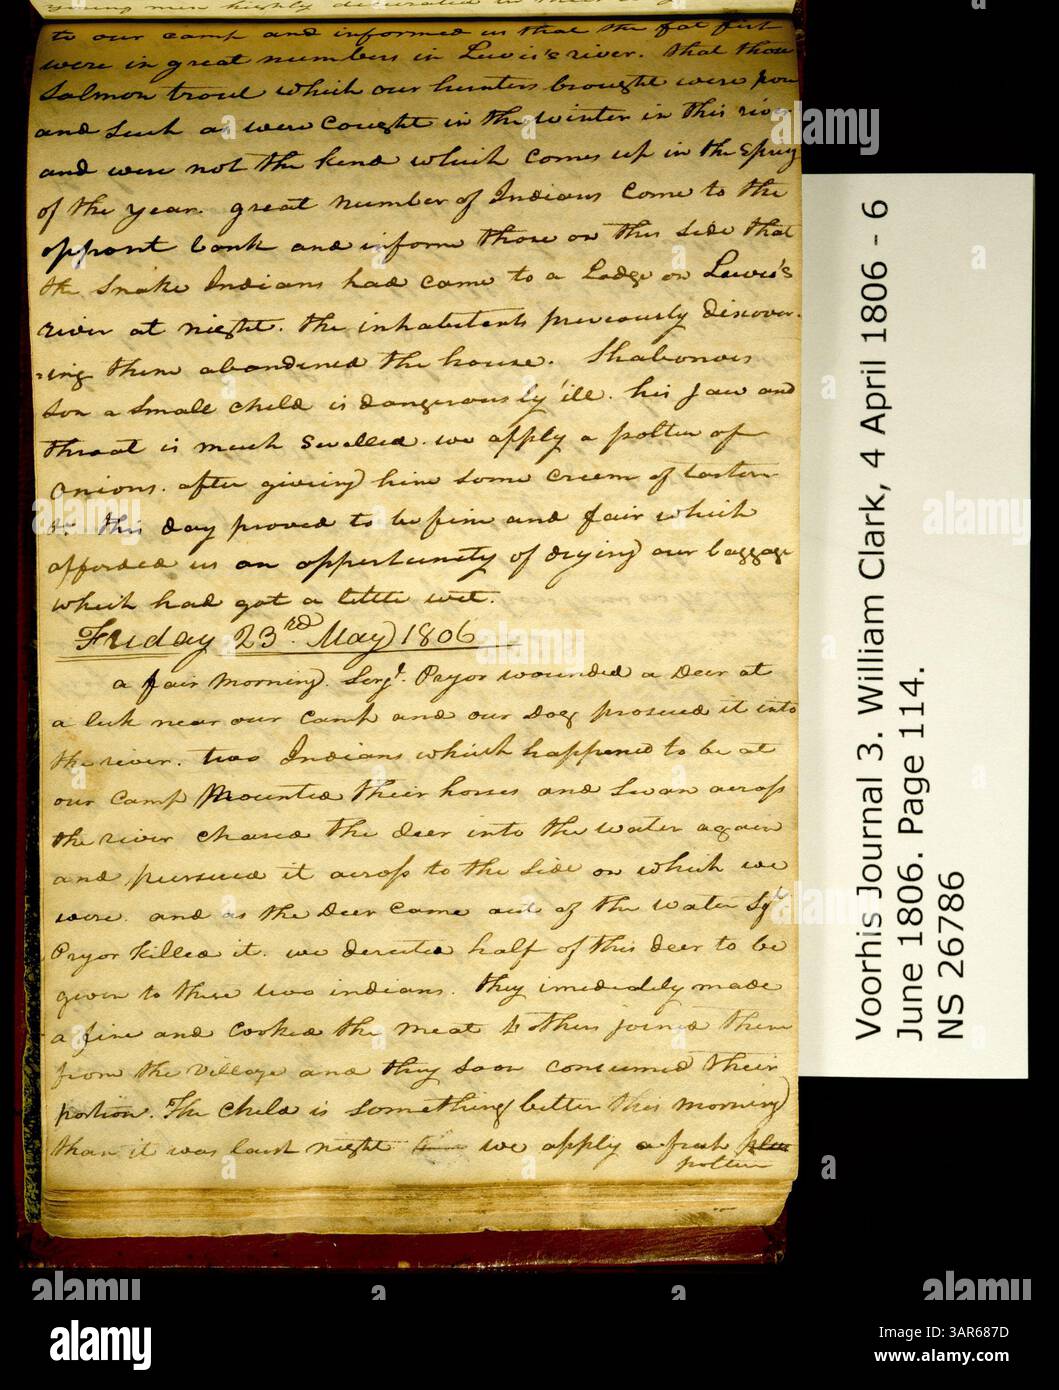 young men highly decorated in their
to our camp and informed us that the fat fish
were in great numbers in Lewis's river. that those
Salmon trout which our hunters brought were pou
and Such as were cought in the winter in this rive
and were not the kind which comes up in the Spring
of the year. great number of Indians come to the
opposit bank and inform those on this Side that
the Snake Indians had come to a Lodge on Lewis's
river at night. the inhabitents previously discover-
-ing them abandened the house. Shabonoes
Son a Small child is dangerously ill. his jaw and
throat is much Swelled. we apply a poltice of
Onions. after giveing him some creem of tarter
&c. this day proved to be fine and fair which
afforded us an oppertunity of drying our baggage
which had got a little wet.
Friday 23rd May 1806
a fair morning. Sergt. Pryor wounded a Deer at
a lick near our camp and our dog prosued it into
the river. two Indians which happened to be at
our camp Mounted their horses and Swam across
the river chased the deer into the water again
and pursued it across to the Side on which we
were. and as the Deer came out of the water Sgt.
Pryor killed it. we derected half of this deer to be
given to these two indians. they imediately made
a fire and cooked the meat 4 others joined them
from the village and they soon consumed their
portion. The child is something better this morning
than it was last night we apply a fresh
poltice
Voorhis Journal 3. William Clark, 4 April 1806 - 6
June 1806. Page 114.
NS 26786
alamy
a
Image ID: 3AR687D
www.alamy.com